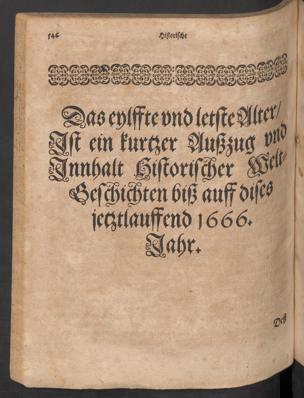 546
Historische
Das eylffte vnd letste Alter/
Ist ein kurtzer Außzug vnd
Innhalt Historischer Welt-
Geschichten biß auff dises
jetztlauffend 1666.
Jahr.
Deß